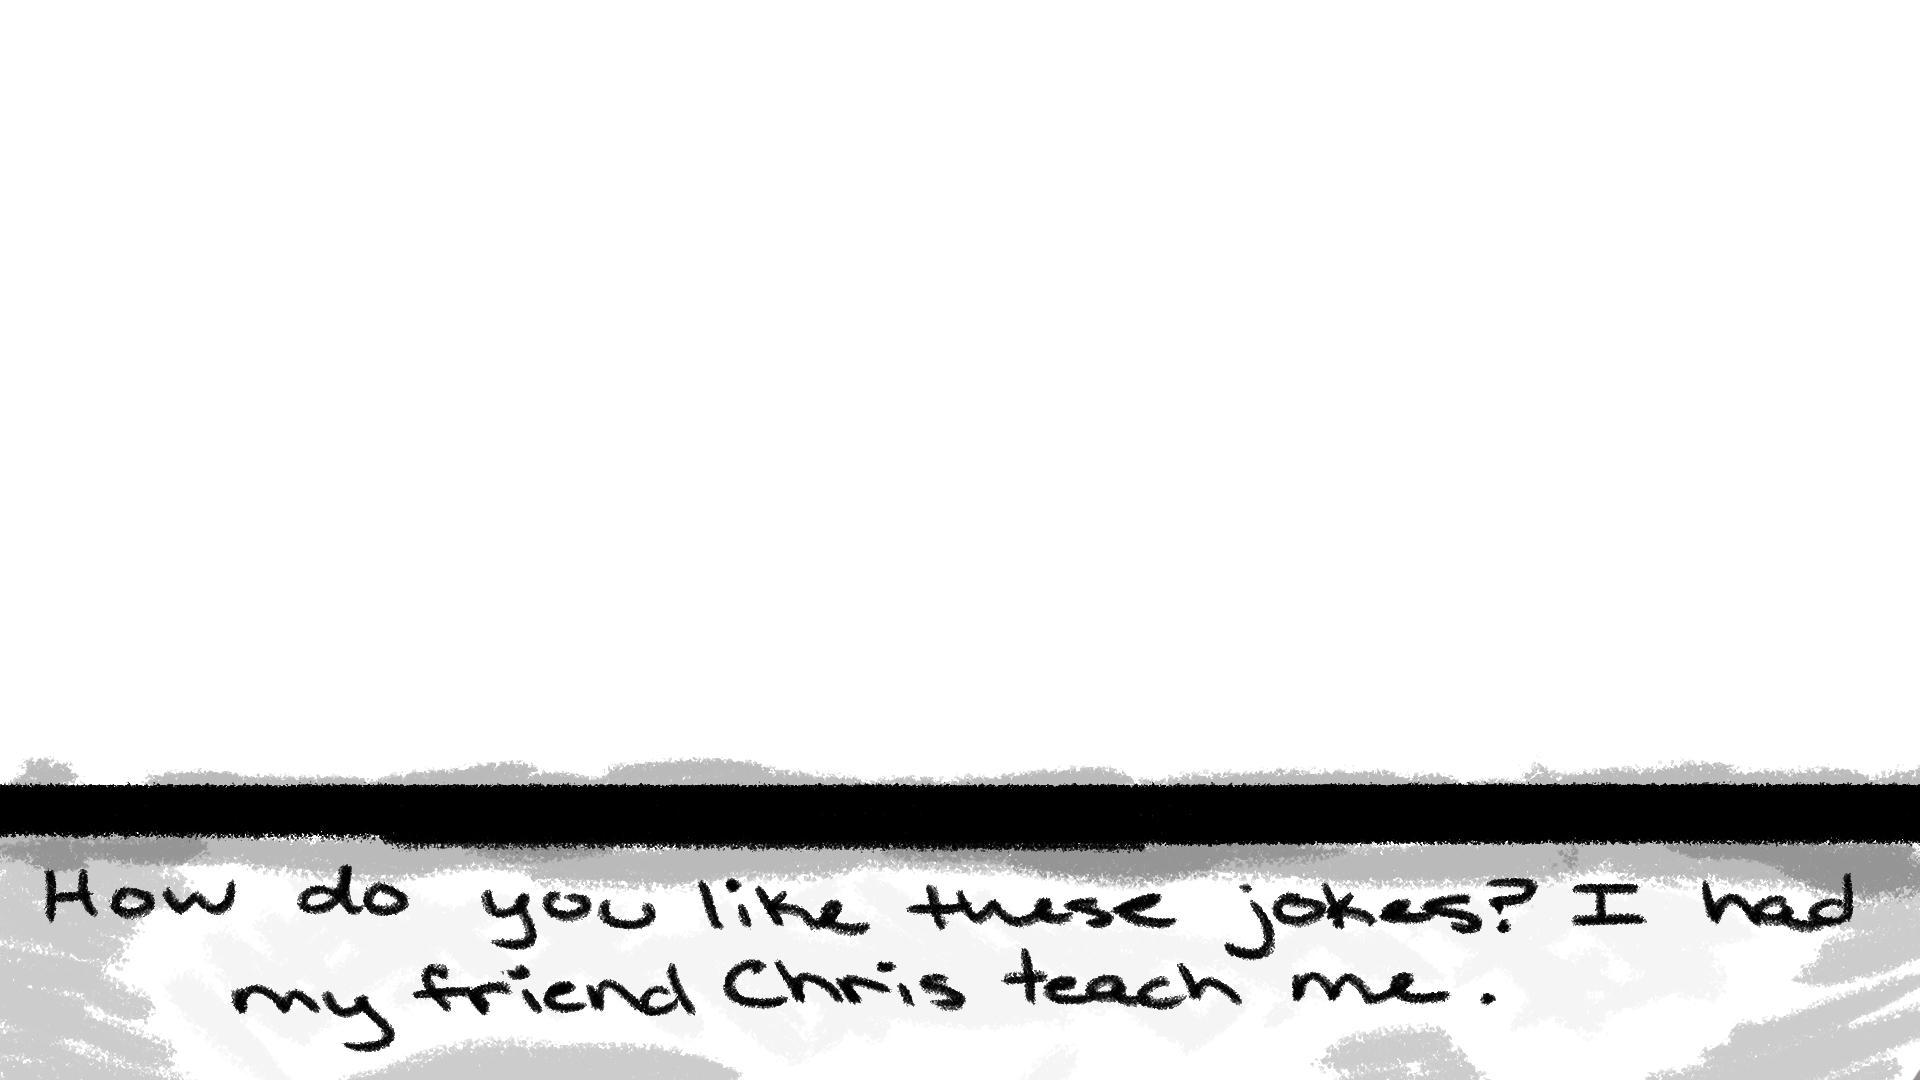 How do you like these jokes? I had
my friend Chris teach me.